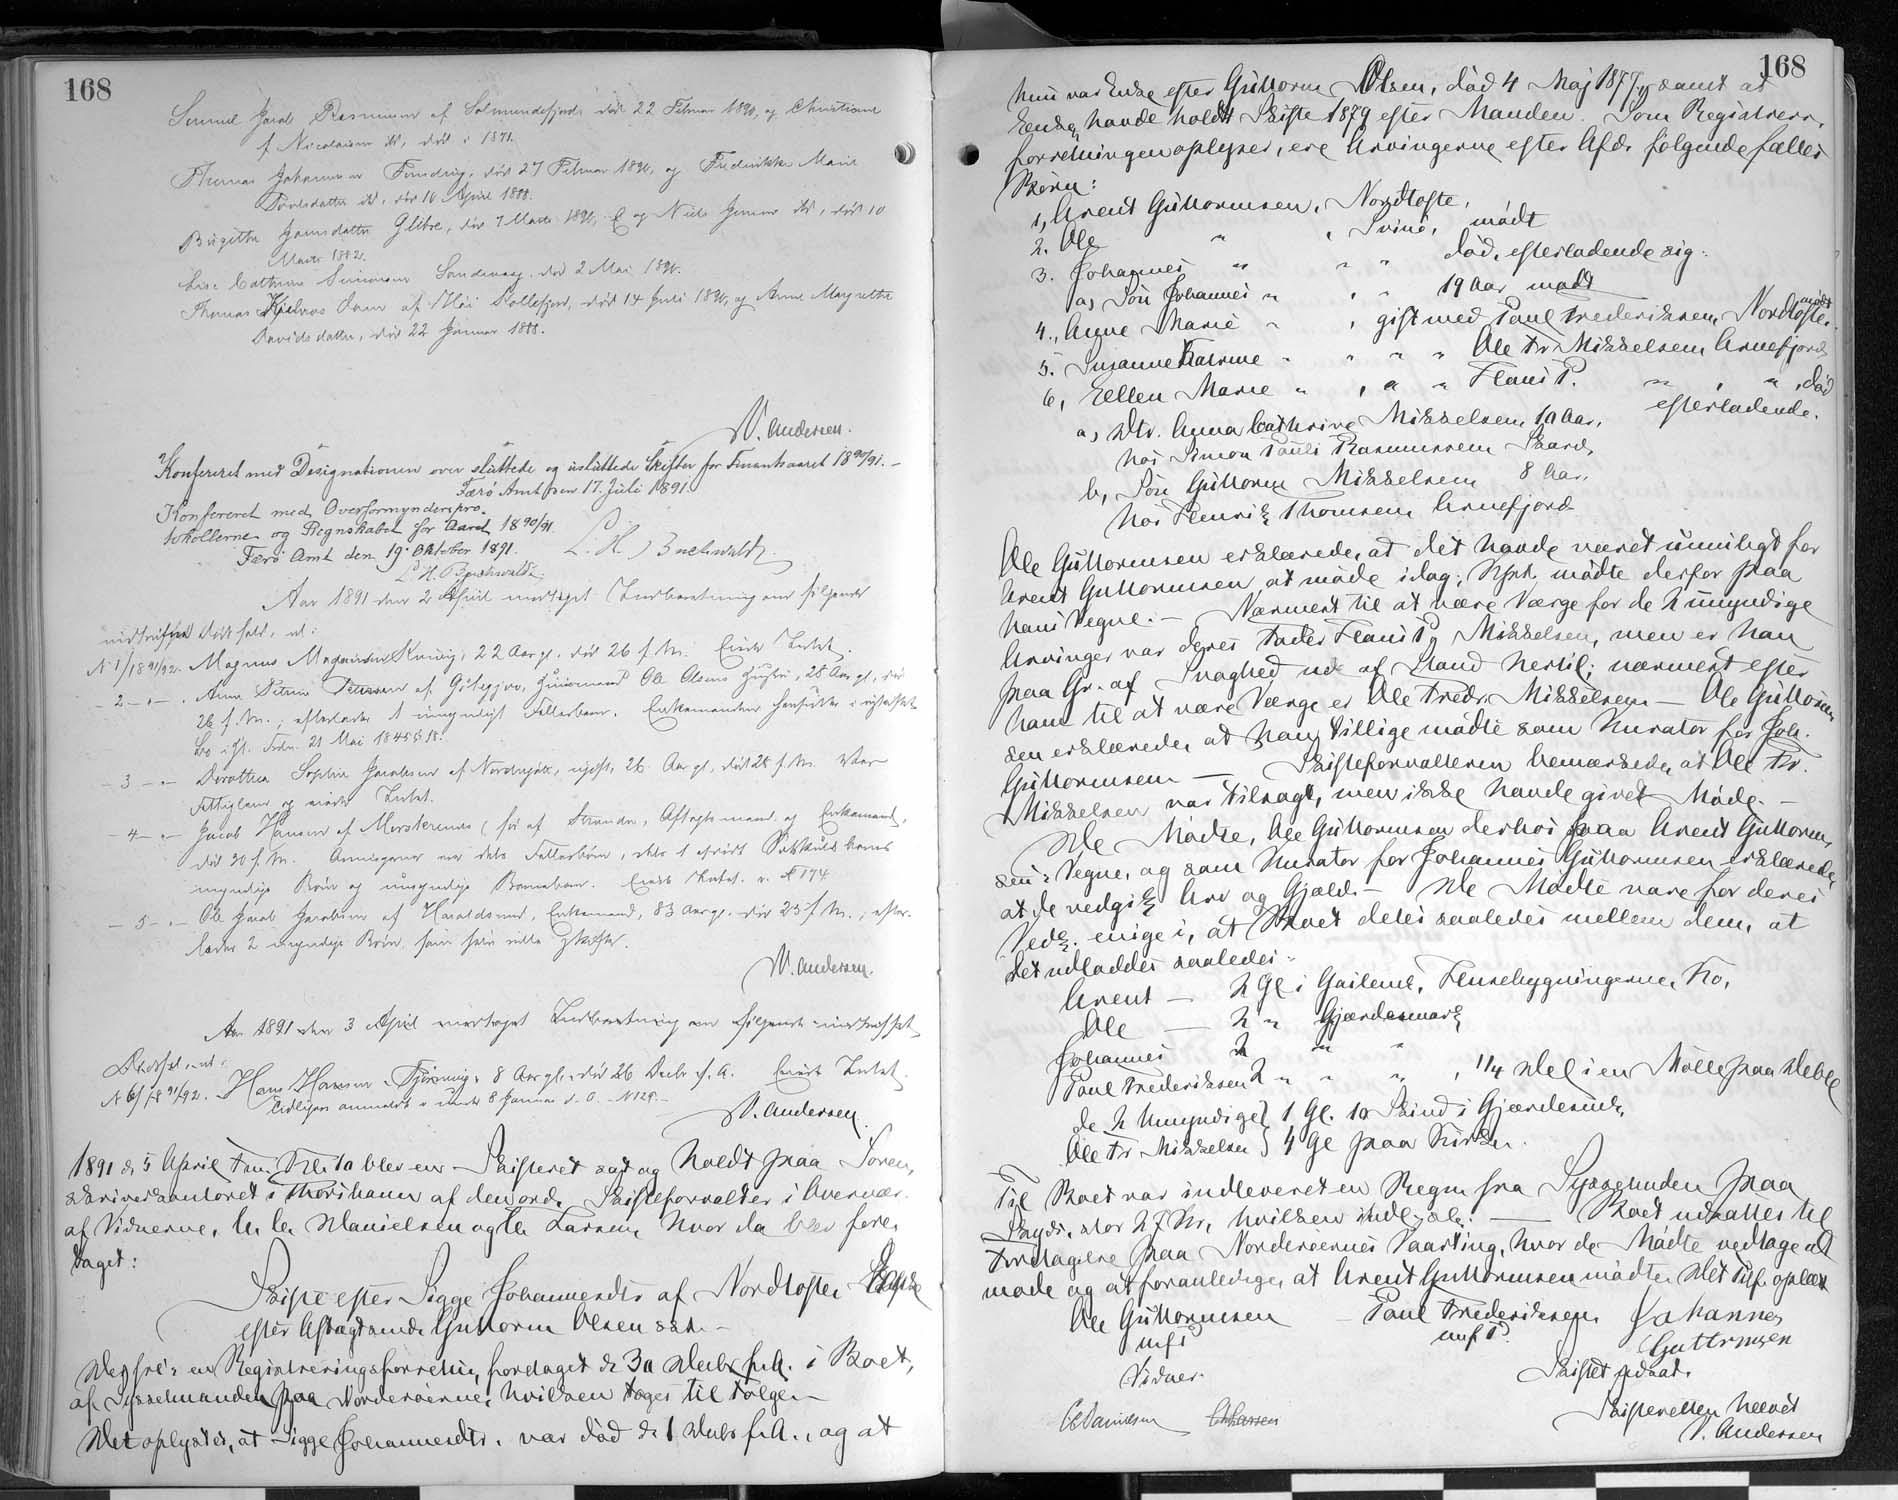 168
Samuel Jacob Rasmussen af Solmundefjord død 22 Februar 1890, og Christiane
f. Nicolaisen ibd, død i 1871.
Thomas Johannesen Funding, død 27 Februar 1890, og Fredrikke Marie
Poulsdatter ibd, død 16 April 1888.
Birgitta Joensdatter Glibre, død 7 Marts 1890, E og Niels Jensen ibd, død 10
Marts 1882.
Lise Cathrine Simonsen Sandevaag, død 2 Mai 1890.
Thomas af Kollefjord, død 14 Juli 1890, og Anne Margrethe
Davidsdatter, død 22 Januar 1888.
V. Andersen.
Konfereret med Designationen over sluttede og usluttede Skifter for Finantsaaret 1890/91.
Færø Amt den 17. Juli 1891.
Konfereret med Overformynderipro-
tokollerne og Regnskabet for Aaret 1890/91.
Færø Amt den 19. Oktober 1891.
L. H. Buchwaldt.
L. H. Buchwaldt.
Aar 1891 den 2 April modtaget Indberetning om følgende
indtrufne Dødsfald, nl:
N 1/1891/92. Magnus Magnussen 22 Aar gl. død 26 f. M. Eiede Intet.
- 2 - " - . Anne Petersen af Götegjov, Huusmand Ole Olsens Hustru, 28 Aar gl, død
26 f. M.; efterlader 1 umyndigt Fællesbarn. Enkemanden hensidder i uskiftet
Bo ifl. Frdn. 21 Mai 1845 § 18.
- 3 - " - Dorothea Sophie Jacobsen af Nordragöte, ugift, 26 Aar gl, død 28 f. M. Var
Fattiglem og eiede Intet.
- 4 - " - Jacob Hansen af Morskranes (før af Strender, Aftægtsmand og Enkemand,
død 30 f. M. Arvingerne ere dels Fællesbørn, dels 1 afdødt
myndige Børn og umyndige Børnebørn. Eiede Intet. v. N 174
- 5 - " - Ole Jacob Jacobsen af Haraldsund, Enkemand, 83 Aar gl. død 25 f. M.; efter-
lader 2 myndige Børn, som selv ville skifte.
V. Andersen.
Aar 1891 den 3 April modtaget Indberetning om følgende indtruffet
Dødsfald, nl:
N 6/1891/92. Hans Hansen, 8 Aar gl., død 26 Decbr. f. A. Eiede Intet.
Tidligere anmeldt under 8 Januar d. A. - N 128.
V. Andersen.
1891 d. 5 April Form. Kl. 10 blev en Skifteret sat og holdt paa Soren-
skriverkontoret i Thorshavn af den ord. Skifteforvalter i Overvær
af Vidnerne, C. C. Danielsen og Chr. Larsen, hvor da blev fore-
taget:
Skifte efter Sigge Johannesdtr. af Nordtofte, Enke
efter Aftægtsmd. Guttorm Olsen sst. -
Der frl: en Registreringsforretn., foretaget d. 30 Decbr f. A. i Boet,
af Sysselmanden paa Norderøerne, hvilken tages til Følge. -
Det oplystes, at Sigge Johannesdtr. var død d. 1 Decbr f. A., og at
168
hun var Enke efter Guttorm Olsen, død 4 Maj 1877, samt at
Enken havde holdt Skifte 1879 efter Manden. Som Registrerings-
forretningen oplyser, ere Arvingerne efter Afd. følgende fælles
Børn:
1, Arent Guttormsen, Nordtofte,
2. Ole " , Svinø, mødt
3. Johannes " " " død, efterladende sig:
a, Søn Johannes " , " 19 Aar, mødt
4., Anne Marie " , gift med Poul Frederiksen, Nordtofte, mødt
5. Susanne " " " Ole Fr. Mikkelsen, Arnefjord
6, Ellen Marie " , " " Hans P. " , " , død
efterladende.
a, Dtr. Anna Cathrine Mikkelsen, 10 Aar,
hos Simon Pauli Rasmussen, Skaard,
b, Søn Guttorm Mikkelsen 8 Aar,
hos Henrik Thomsen, Arnefjord
Ole Guttormsen erklærede, at det havde været umuligt for
Arent Guttormsen at møde idag; Kpt. mødte derfor paa
hans Vegne. - Nærmest til at være Værge for de 2 umyndige
Arvinger var deres Fader Hans P. Mikkelsen, men er han
paa Gr. af Svaghed ude af Stand hertil; nærmest efter
ham til at være Værge er Ole Fredr. Mikkelsen - Ole Guttorm-
sen erklærede, at han tillige mødte som Kurator for Joh.
Guttormsen - Skifteforvalteren bemærkede, at Ole Fr.
Mikkelsen var tilsagt, men ikke havde givet Møde. -
De Mødte, Ole Guttormsen derhos paa Arent Guttorm-
sen's Vegne, og som Kurator for Johannes Guttormsen erklærede,
at de vedgik Arv og Gjæld. - De Mødte vare for deres
Vedk. enige i, at Boet deles saaledes mellem dem, at
det udloddes saaledes:
Arent - 2 Gl. i Husebygningerne, Ko,
Ole - 2 " Gjærdesmark
Johannes 2 " "
Poul Frederiksen 2 " " " , 1/4 Del i en Mølle paa
de 2 Umyndige } 1 Gl. 10 Skind i Gjærdesmk,
Ole Fr Mikkelsen } 4 Gl paa
Til Boet var indleveret en Regn. fra Sysselmden paa
Skyds, stor 27 Kr, hvilken indl. saal: - Boet udsattes til
Foretagelse paa Norderøernes Vaarting, hvor de Mødte vedtage at
møde og at foranledige, at Arent Guttormsen mødte. Det Tilf. oplæst
Ole Guttormsen - Poul Frederiksen Johannes
m f P m f P. Guttormsen
Vidner. Skiftet udsat.
Skifteretten hævet
CCDanielsen ChLarsen V. Andersen